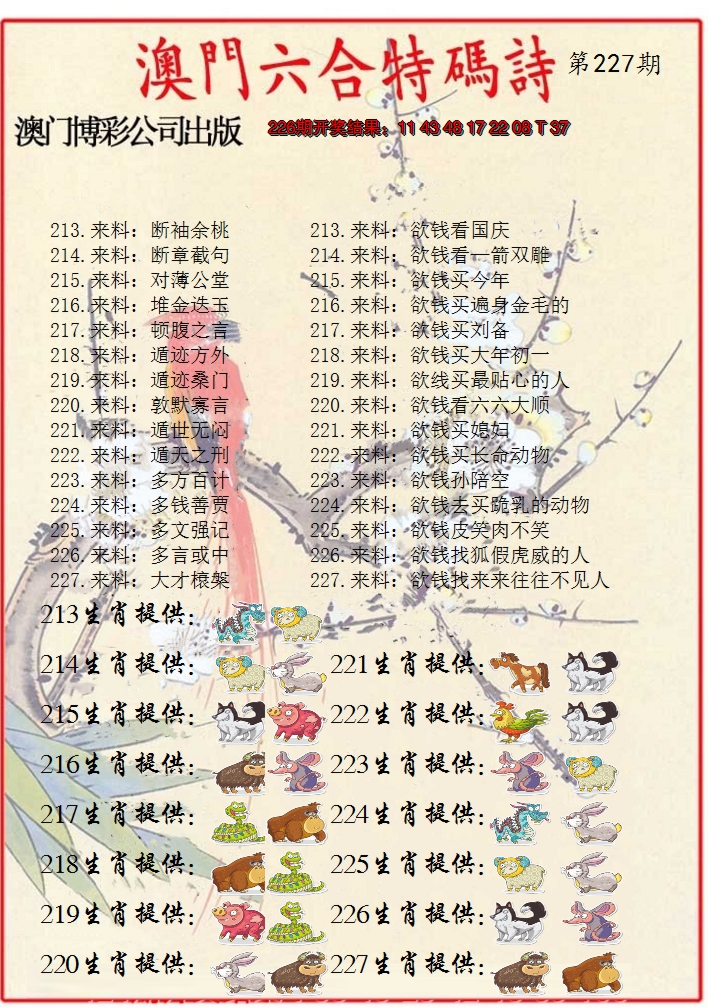 澳門六合特碼詩 第227期
澳门博彩公司出版 226期开奖结果：11 43 48 17 22 08 T 37
213.来料：断袖余桃 213.来料：欲钱看国庆
214.来料：断章截句 214.来料：欲钱看一箭双雕
215.来料：对薄公堂 215.来料：欲钱买今年
216.来料：堆金迭玉 216.来料：欲钱买遍身金毛的
217.来料：顿腹之言 217.来料：欲钱买刘备
218.来料：遁迹方外 218.来料：欲钱买大年初一
219.来料：遁迹桑门 219.来料：欲线买最贴心的人
220.来料：敦默寡言 220.来料：欲钱看六六大顺
221.来料：遁世无闷 221.来料：欲钱买媳妇
222.来料：遁天之刑 222.来料：欲钱买长命动物
223.来料：多方百计 223.来料：欲钱孙陪空
224.来料：多钱善贾 224.来料：欲钱去买跪乳的动物
225.来料：多文强记 225.来料：欲钱皮笑肉不笑
226.来料：多言或中 226.来料：欲钱找狐假虎威的人
227.来料：大才榱槃 227.来料：欲钱找来来往往不见人
213生肖提供：
214生肖提供： 221生肖提供：
215生肖提供： 222生肖提供：
216生肖提供： 223生肖提供：
217生肖提供： 224生肖提供：
218生肖提供： 225生肖提供：
219生肖提供： 226生肖提供：
220生肖提供： 227生肖提供：